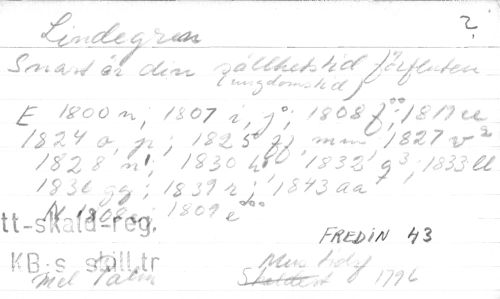 Lindegren ?
Snart är din sällhetstid förfluten
(ungdomstid)
E 1800 n; 1807 i, j°; 1808 f°°; 1819 cc
1824 o, p; 1825 f), mm 1827 v
1828 n; 1830 h 1832 g³; 1833 ll
1836 gg; 1839 r; 1843 aa
N 1802 ; 1809 e°°°
tt-skald-reg.
FREDIN 43
KB:s skill.tr
Mel Palm 1796